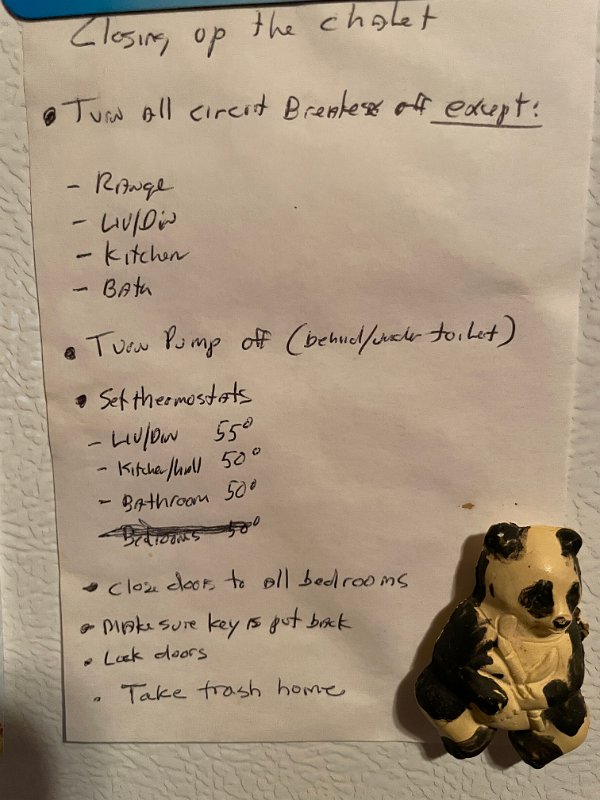 Closing up the chalet
• Turn all circuit Breakers off except:
- Range
- Liv/Din
- Kitchen
- Bath
• Turn Pump off (behind/under toilet)
• Set thermostats
- Liv/Din 55°
- Kitchen/hall 50°
- Bathroom 50°
Bedrooms 50°
• Close doors to all bedrooms
• Make sure key is put back
• Lock doors
• Take trash home